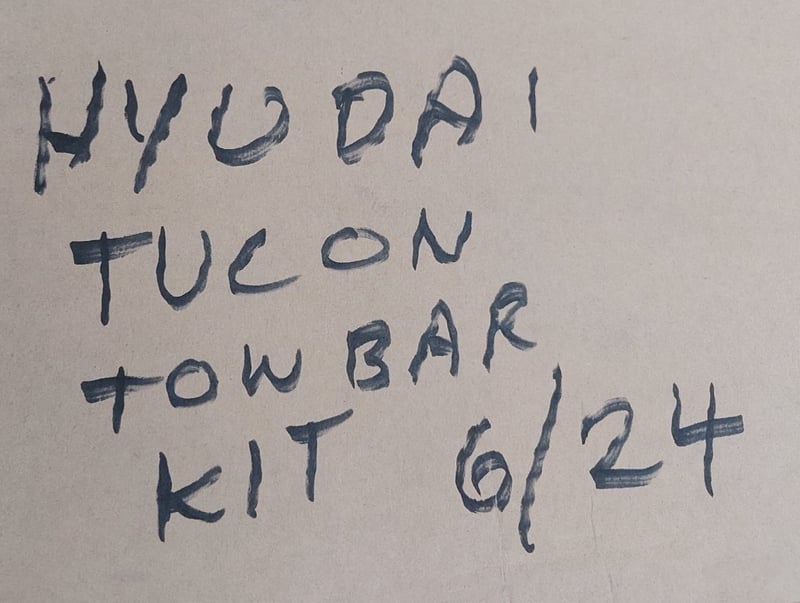 HYUDAI
TUCON
TOW BAR
KIT 6/24